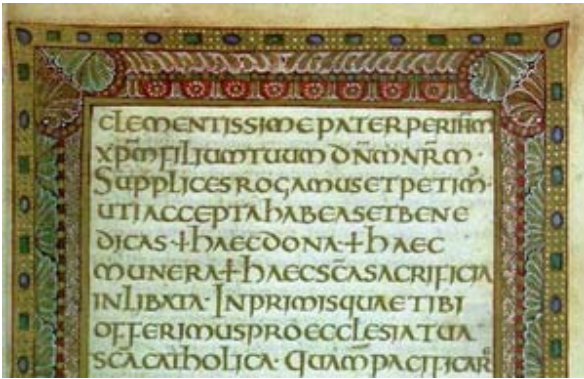 CLEMENTISSIME PATER PER IHM̅
XP̅M FILIUM TUUM DN̅M NR̅M·
SUPPLICES ROGAMUS ET PETIM·
UTI ACCEPTA HABEAS ET BENE
DICAS + HAEC DONA + HAEC
MUNERA + HAEC SC̅A SACRIFICIA
INLIBATA· INPRIMIS QUAE TIBI
OFFERIMUS PRO ECCLESIA TUA
SC̅A CATHOLICA· QUAM PACIFICAR̅